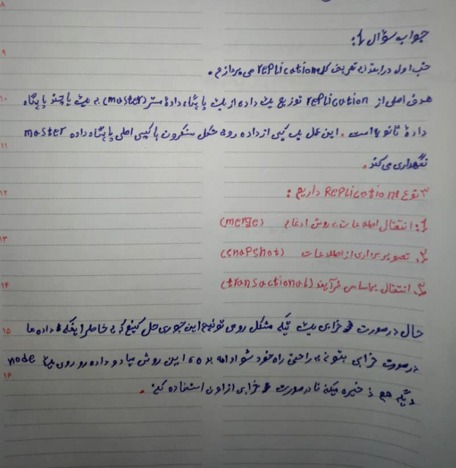 جواب سؤال 1:
خب اول در ابتدا به تعریف کل replication می پردازم.
هدف اصلی از replication توزیع یک داده از یک پایگاه دادهٔ مستر (master) به یک یا چند پایگاه
دادهٔ ثانویه است. این عمل یک کپی از داده رو به شکل سنکرون با کپی اصلی پایگاه داده master
نگهداری می کند.
۳ نوع Replication داریم:
1. انتقال اطلاعات به روش ادغام (merge)
2. تصویر برداری از اطلاعات (snapshot)
3. انتقال براساس فرآیند (transactional)
حال در صورت خرابی یک تیکه مشکل رو می توانیم این جوری حل کنیم که به خاطر اینکه داده ما
در صورت خرابی بتونه به راحتی راه خود شو ادامه بده این روش میاد و داده رو روی یک node
دیگه هم ذخیره میکنه تا در صورت خرابی از اون استفاده کنیم.
۸
۹
۱۰
۱۱
۱۲
۱۳
۱۴
۱۵
۱۶